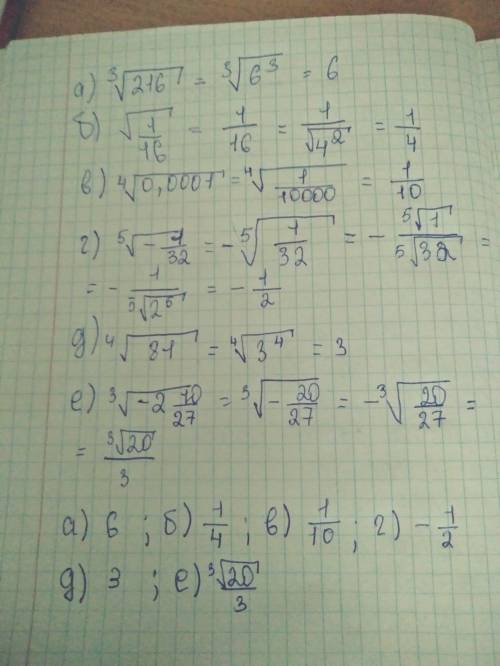 а) ∛216 = ∛6³ = 6
б) √1/16 = 1/16 = 1/√4² = 1/4
в) ⁴√0,0001 = ⁴√1/10000 = 1/10
г) ⁵√-1/32 = -⁵√1/32 = - ⁵√1/⁵√32 =
= - 1/⁵√2⁵ = - 1/2
д) ⁴√81 = ⁴√3⁴ = 3
е) ³√-2 10/27 = ³√-20/27 = -³√20/27 =
= ³√20/3
а) 6 ; б) 1/4 ; в) 1/10 ; г) - 1/2
д) 3 ; е) ³√20/3